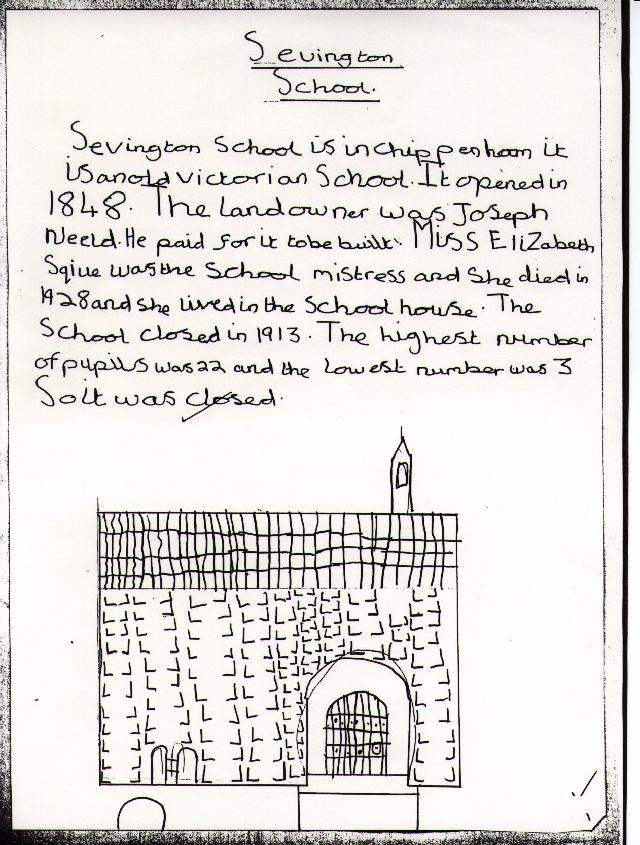 Sevington
School.
Sevington School is in chippenham it
is an old victorian School. It opened in
1848. The landowner was Joseph
Neeld. He paid for it to be built. Miss Elizabeth
Sqiue was the School mistress and She died in
1928 and she lived in the School house. The
School closed in 1913. The highest number
of pupils was 22 and the lowest number was 3
So it was closed.